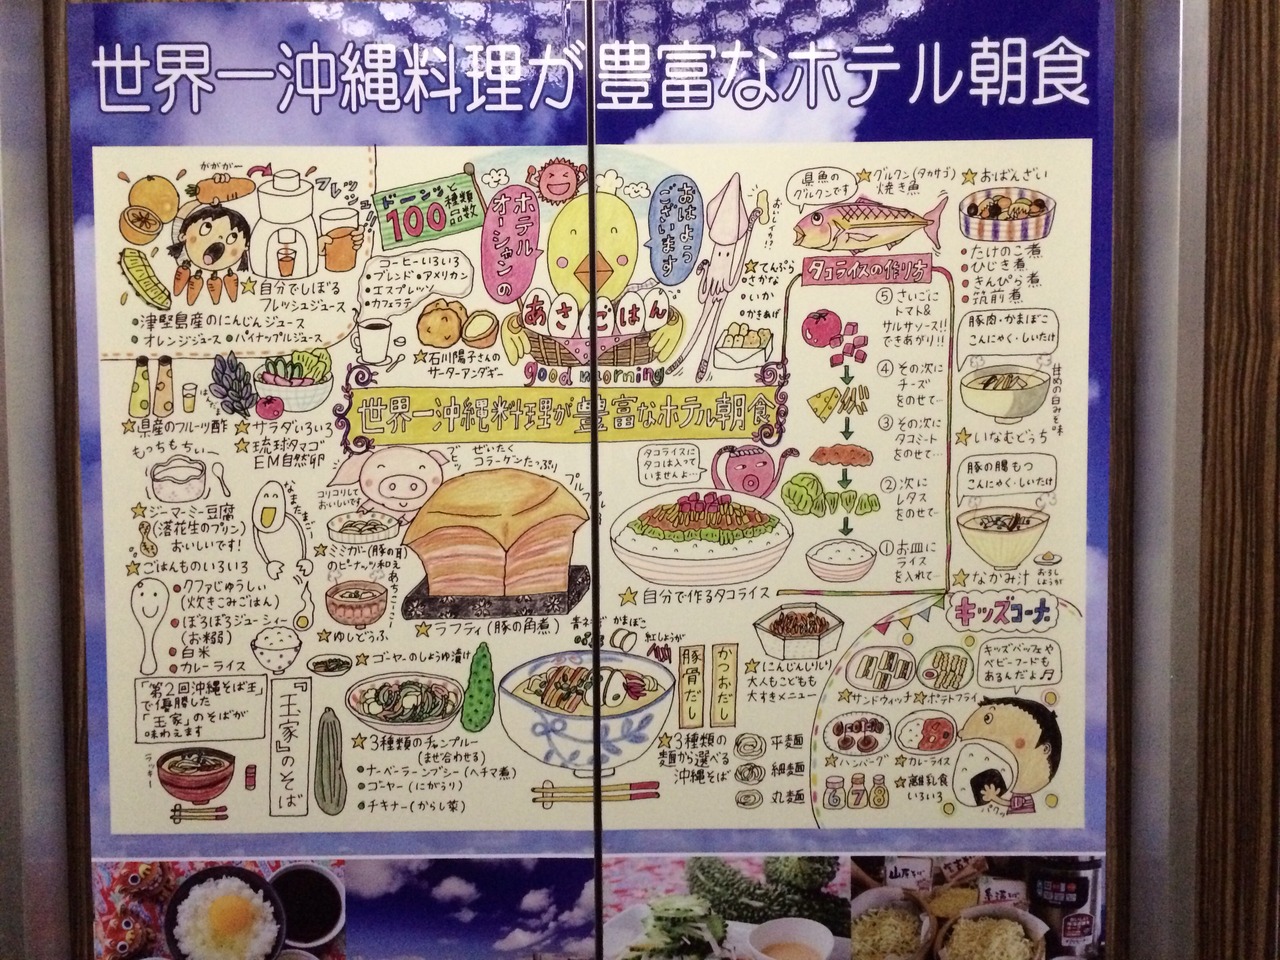 世界一沖縄料理が豊富なホテル朝食
がががー
フレッシュ!!
☆自分でしぼる
フレッシュジュース
●津堅島産のにんじんジュース
●オレンジジュース ●パイナップルジュース
ドーンッと
100種類
品数
コーヒーいろいろ
・ブレンド・アメリカン
・エスプレッソ
・カフェラテ
☆石川陽子さんの
サーターアンダギー
ホテル
オーシャンの
おはよう
ございます
あさごはん
good morning
おいしイカ!?
☆てんぷら
○さかな
○いか
○かきあげ
世界一沖縄料理が豊富なホテル朝食
県魚の
グルクンです
☆グルクン(タカサゴ)
焼き魚
☆おばんざい
●たけのこ煮
●ひじき煮
●きんぴら煮
●筑前煮
タコライスの作り方
⑤さいごに
トマト&
サルサソース!!
できあがり!!
④その次に
チーズ
をのせて…
③その次に
タコミート
をのせて…
②次に
レタス
をのせて…
①お皿に
ライス
を入れて…
豚肉・かまぼこ
こんにゃく・しいたけ
甘めの白みそ味
☆いなむどぅち
豚の腸もつ
こんにゃく・しいたけ
☆なかみ汁
おろし
しょうが
☆県産のフルーツ酢
☆サラダいろいろ
☆琉球タマゴ
EM自然卵
もっちもちぃー
☆ジーマーミー豆腐
(落花生のプリン)
おいしいです!
なまたまごー
☆ごはんものいろいろ
●クファじゅうしぃ
(炊きこみごはん)
●ぼろぼろジューシィー
(お粥)
●白米
●カレーライス
コリコリして
おいしいです
☆ミミガー(豚の耳)
のピーナッツ和え
☆ゆしどうふ
ブヒッ
ぜいたく
コラーゲンたっぷり
☆ラフティ(豚の角煮)
タコライスに
タコは入って
いませんよ…
☆自分で作るタコライス
「第2回沖縄そば王」
で優勝した
「玉家」のそばが
味わえます
ラッキー
『玉家』のそば
☆ゴーヤーのしょうゆ漬け
☆3種類のチャンプルー
(まぜ合わせる)
●ナーベーラーンブシー(ヘチマ煮)
●ゴーヤー(にがうり)
●チキナー(からし菜)
青ネギ
かまぼこ
紅しょうが
豚骨だし
かつおだし
☆3種類の
麺から選べる
沖縄そば
平麺
細麺
丸麺
☆にんじんしりしり
大人もこどもも
大すきメニュー
キッズコーナー
キッズバッフェや
ベビーフードも
あるんだよ♫
☆サンドウィッチ
☆ポテトフライ
☆ハンバーグ
☆カレーライス
6 7 8
☆離乳食
いろいろ
パクッ